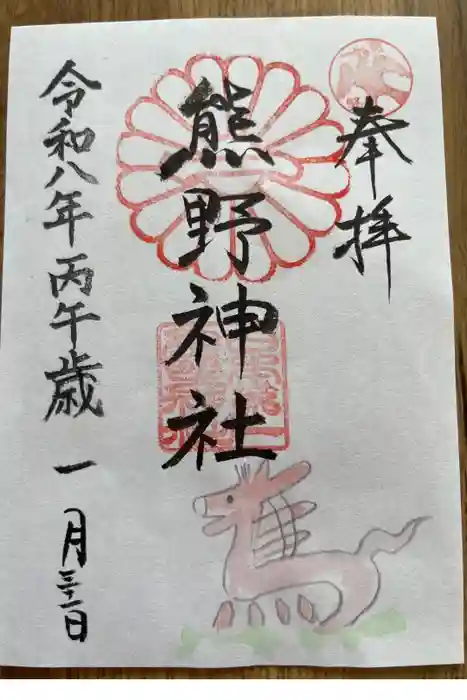 奉拝
熊野神社
令和八年丙午歳一月三十一日